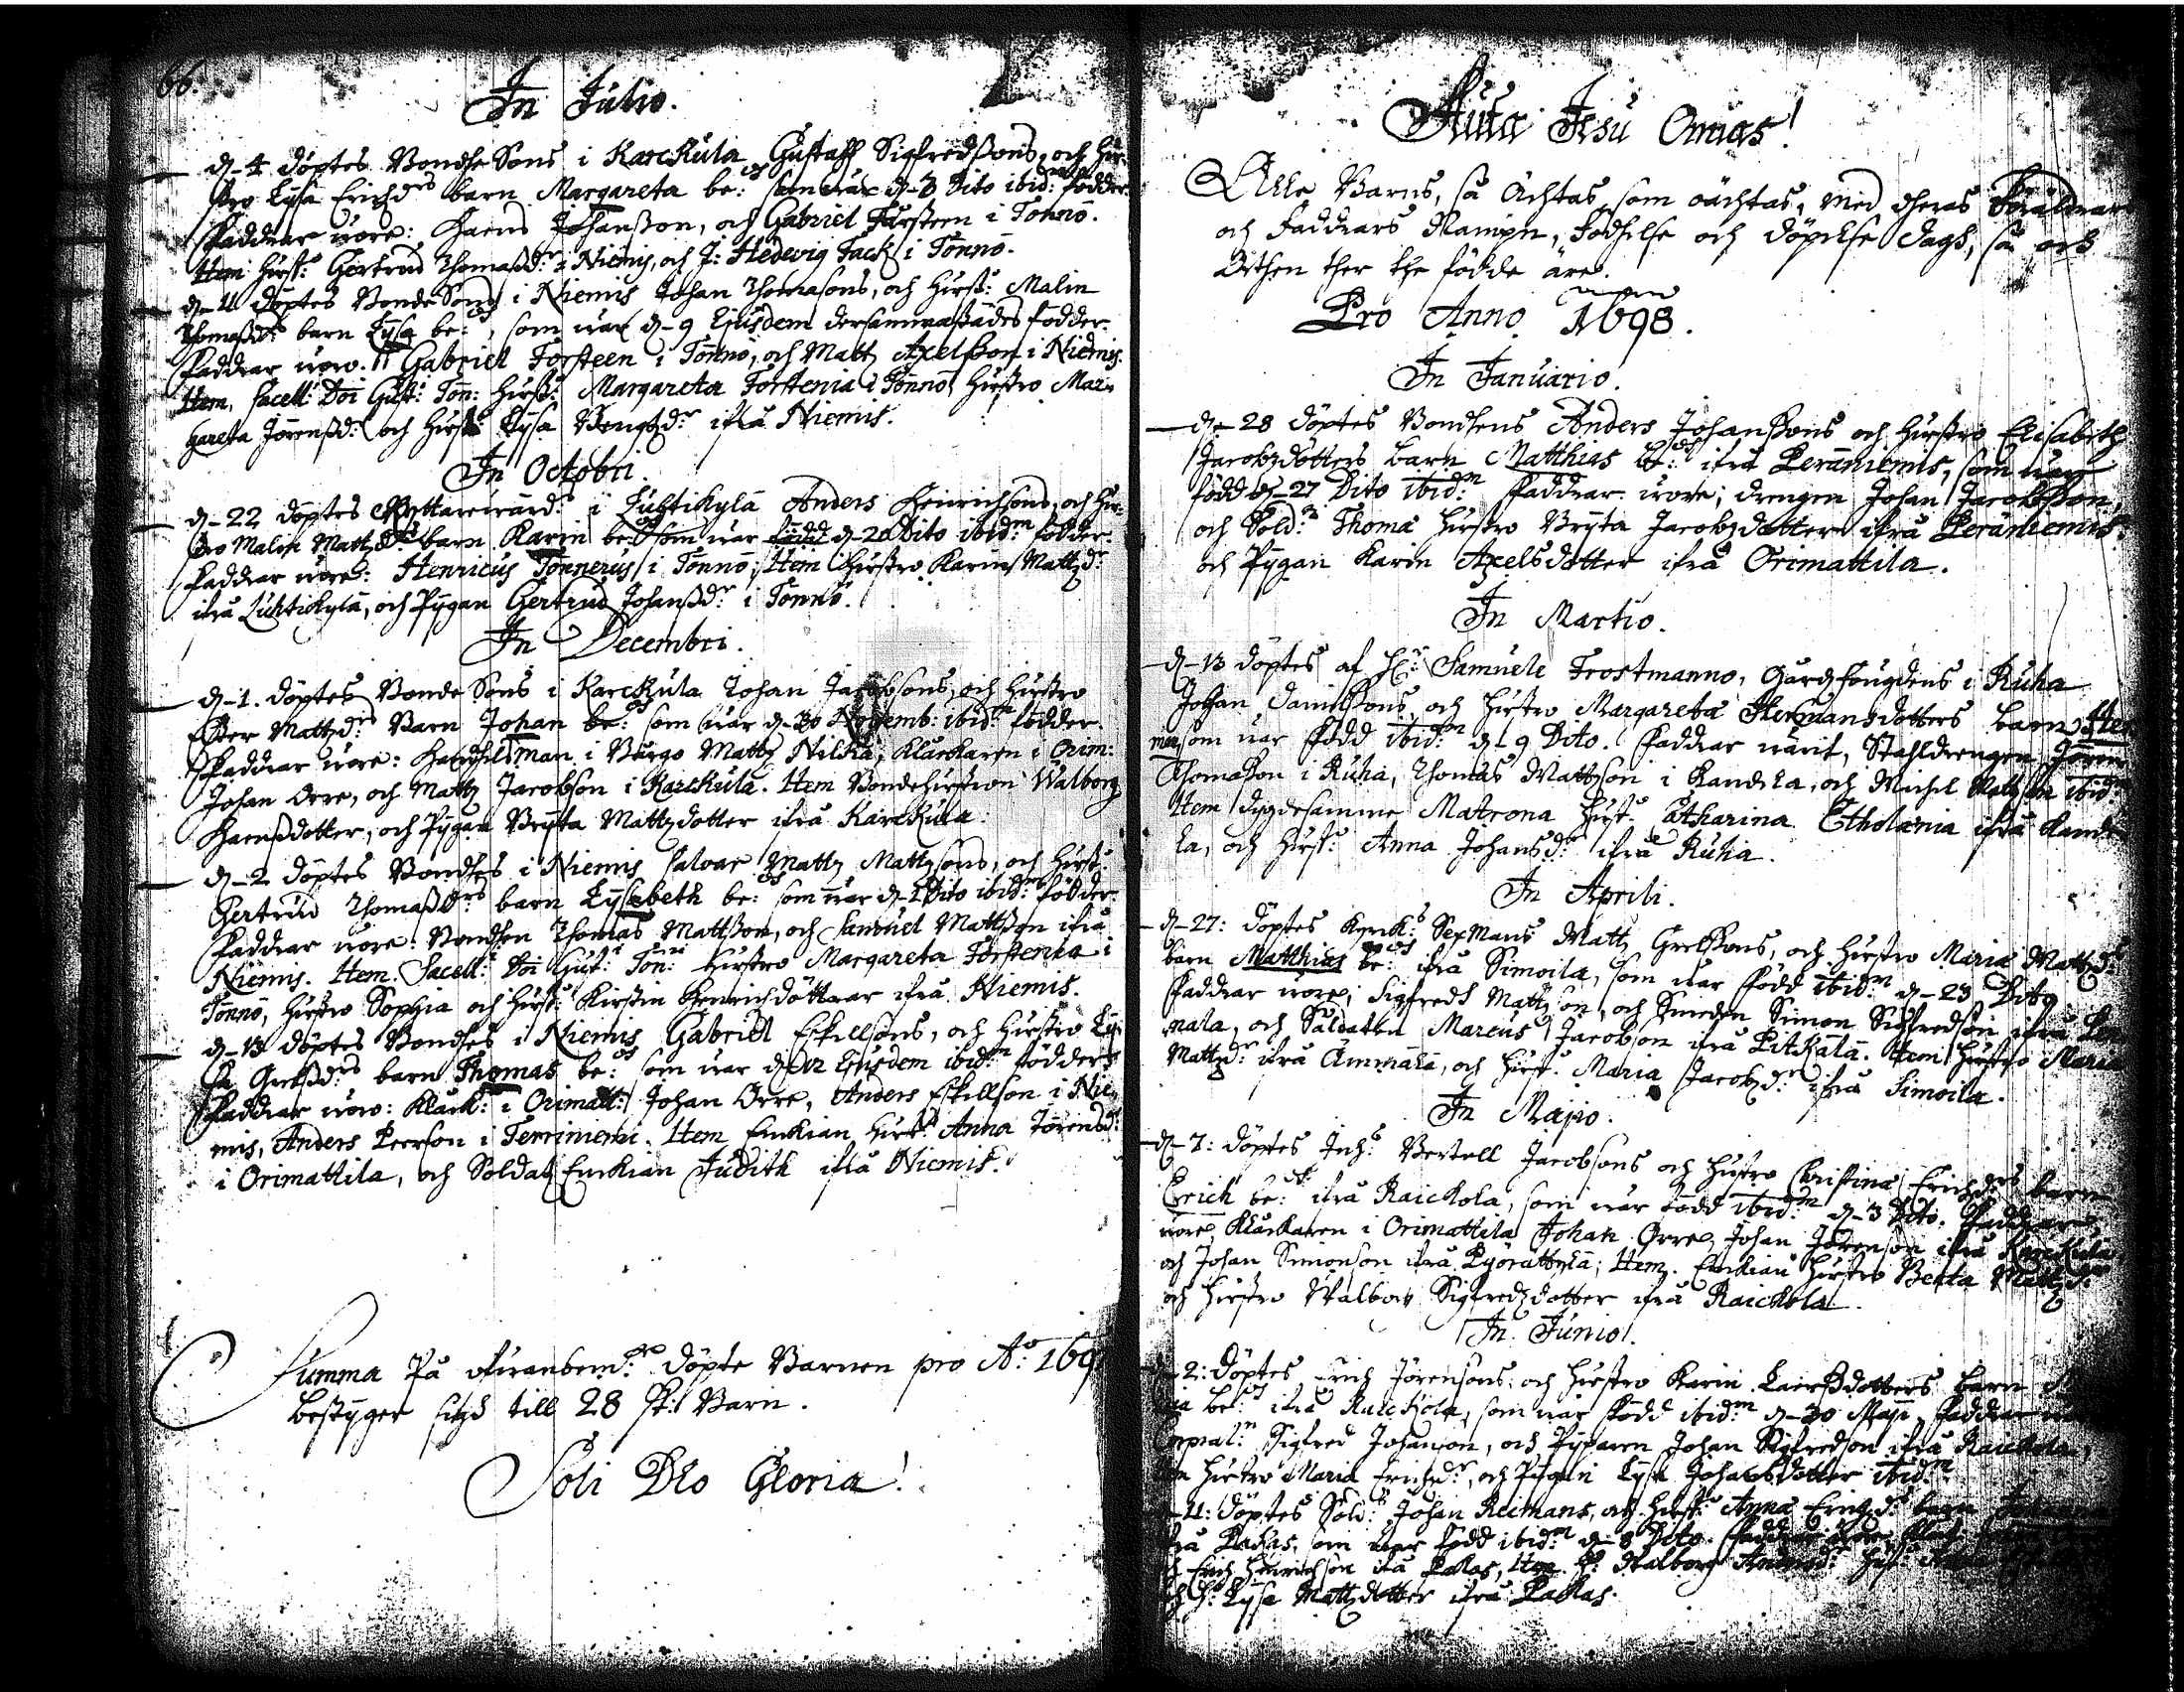 66.
In Julio.
d- 4 döptes Bondhe Sons i Karckula Gustaff Sigfredssons, och Hu-
stro Lysa Erichdrs barn Margareta be: som war d- 3 Dito ibid: födder.
Faddrar wore: Johansson, och Gabriel Forsteen i Tönnö.
Item Hust: Gertrud Thomasdr i Niemis, och J: Hedevig Fack i Tönnö.
d- 11 döptes Bonde Sons i Niemis Johan Thomasons, och Hust: Malin
Thomasdrs barn Lysa be:, som war d- 9 Ejusdem dersammastädes födder.
Faddrar wore. Gabriel Forsteen i Tönnö, och Matz Axelsson i Niemis.
Item, Sacell: Doi Gust: Tön: Hust: Margareta Forstenia i Tönnö, Hustro Mar-
gareta Jörensdr och Hust: Lysa Bengtzdr ifrå Niemis.
In Octobri.
d- 22 döptes i Luhtikylä Anders Heinrichsons, och Hu-
stro Malin Matzdrs barn Karin be: som war född d- 20 Dito ibidm födder.
Faddrar wore: Henricus Tönnerus i Tönnö, Item Hustro Karin Matzdr
ifrå Luhtikylä, och Pygan Gertrud Johansdr i Tönnö.
In Decembri.
d- 1. döptes Bonde Sons i Karckula Johan Jacobsons, och Hustro
Ester Matzdrs Barn Johan be: som war d- 30 Novemb: ibidm födder.
Faddrar wore: man i Burgo Matz Nilka, Klåckaren i Orim:
Johan Orre, och Matz Jacobson i Karckula. Item Bondehustron Walborg
Hansdotter, och Pygan Bryta Matzdotter ifrå Karckula.
d- 2 döptes Bondhes i Niemis Matz Matzsons, och Hust:
Gertrud Thomasdrs barn Lysebeth be: som war d- 1 Dito ibidm födder.
Faddrar wore: Bondhen Thomas Mattsson, och Samuel Mattsson ifrå
Niemis. Item. Sacell: Doi Gust: Tön: Hustro Margareta Forstenia i
Tönnö, Hustro Sophia och Hust: Kirstin Henrichdöttrar ifrå Niemis.
d- 13 döptes Bondhes i Niemis Gabriel Eskillsons, och Hustro Ly-
sa drs barn Thomas be: som war d- 12 Ejusdem ibidm födder
Faddrar wore: Klåck: i Orimatt: Johan Orre, Anders Eskillson i Nie-
mis, Anders Peerson i Terriniemi. Item Enckian Hust: Anna Jörensdr
i Orimattila, och Soldatz Enckian Judith ifrå Niemis.
Summa På ofwanbemte döpte Barnen pro Ao: 1697
bestyger sigh till 28 st: Barn.
Soli Deo Gloria!
Juva Jesu Omnes!
Alle Barns, så Ächtas, som oächtas, med theras Föräldrars
och Faddrars Nampn, Födhelse och döpelse dagh, så och
Orthen ther the födde äre.
Pro Anno 1698.
In Januario.
d- 28 döptes Bondhens Anders Johanssons och Hustro Elisabeth
Jacobzdotters barn Matthias be: ifrå Peräniemis, som war
född d- 27 Dito ibidm Faddrar wore; drengen Johan Jacobsson,
och Sold: Thoma Hustro Bryta Jacobzdotter ifrå Peräniemis,
och Pygan Karin Axelsdotter ifrå Orimattila.
In Martio.
d- 13 döptes af Hr: Samuele Trostmanno, Gårdzfougdens i Ruha
Johan Danielssons och Hustro Margareta Hermansdotters barn Her-
man, som war född ibidm d- 9 Dito. Faddrar warit, Stahldrengen Jören
Thomasson i Ruha, Thomas Mattsson i Kandela, och Michel Mattsson ibidm
Item dygdesamme Matrona Hust: Catharina Etholænia ifrå Kande-
la, och Hust: Anna Johansdr ifrå Ruha.
In Aprili.
d- 27: döptes Kyrck: SexMans Matz Grelssons, och Hustro Maria Matzdrs
barn Matthias be: ifrå Simoila, som war född ibidm d- 23 Dito
Faddrar wore; Sigfredh Mattsson, och Smeden Simon Sigfredson ifrå
nala, och Saldaten Marcus Jacobson ifrå Pitkälä. Item Hustro Maria
Matzdr ifrå Ämmälä, och Hust: Maria Jacobzdr ifrå Simoila.
In Majo.
d- 7: döptes Inh: Bertell Jacobsons och Hustro Christina Erichzdrs barn
Erich be: ifrå Raickola, som war född ibidm d- 3 Dito. Faddrar
wore, Klåckaren i Orimattila Johan Orre, Johan Jörenson ifrå Karckula
och Johan Simonson ifrå Pyörättylä; Item. Enckian Hustro Beata Matzdr
och Hustro Walborg Sigfredzdotter ifrå Raickola.
In Junio.
2: döptes Erich Jörensons och Hustro Karin Larssdotters barn
be: ifrå Raickola, som war född ibidm d- 30 Maji, Faddrar
Corporaln Sigfred Johanson, och Pyparen Johan Sigfredson ifrå Raickola,
Hustro Maria Erichzdr, och Pigan Lysa Johansdotter ibidm
11: döptes Sold: Johan Reimans, och Hust: Anna barn
ifrå Pakas, som war född ibidm d- 8 Dito. Faddrar wore
Erich Heinrichson ifrå Pakas, Item H: Walborg
Lysa Matzdotter ifrå Pakas.